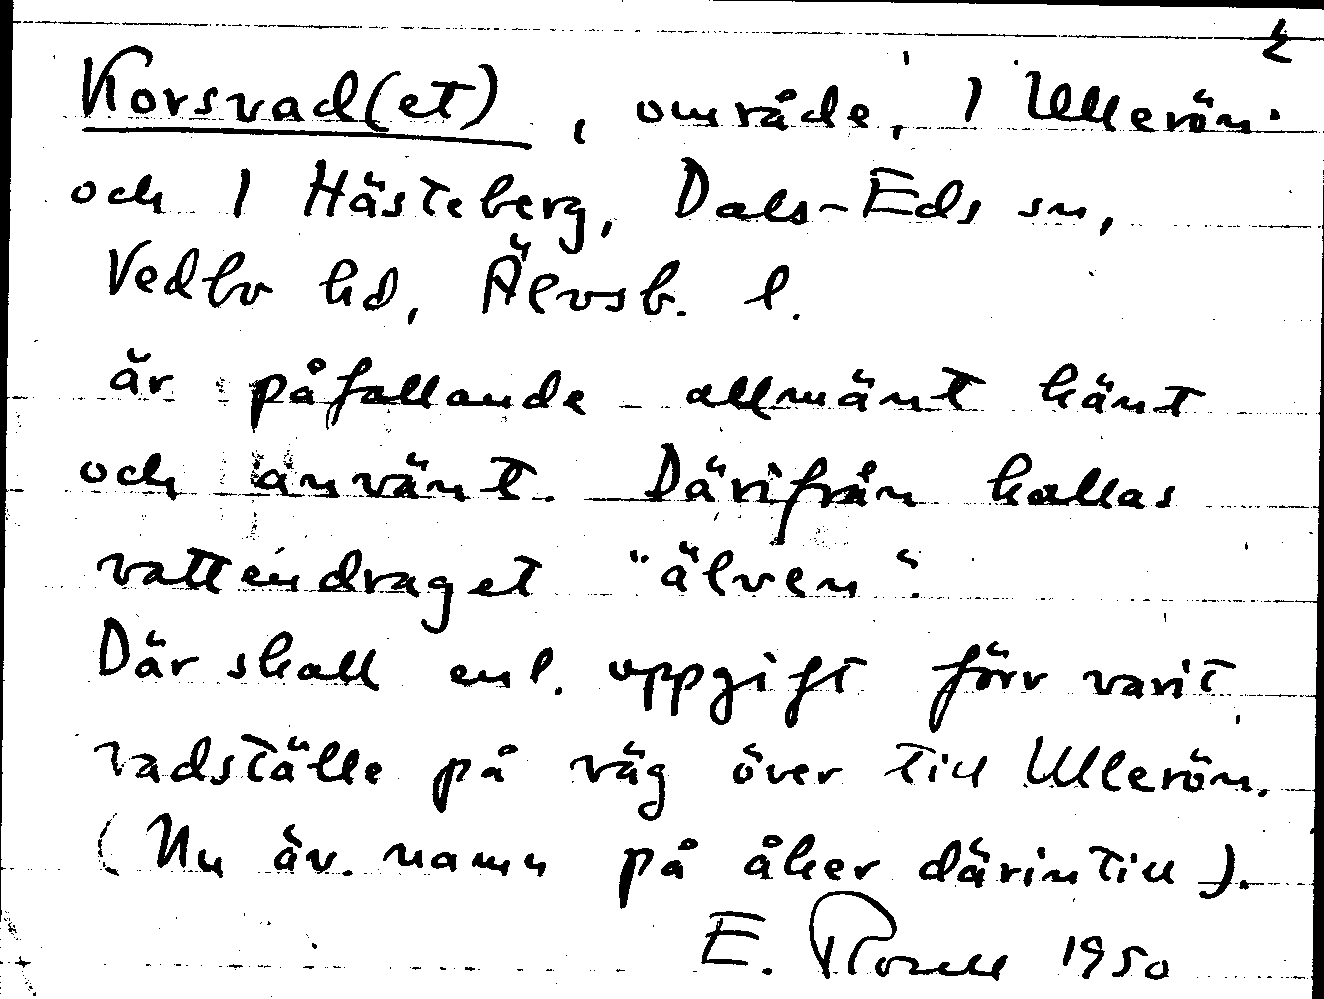 Korsvad(et), område, 1 Ullerön
och 1 Hästeberg, Dals-Eds sn,
Vedbo hd, Älvsb. l.
är påfallande allmänt känt
och använt. Därifrån kallas
vattendraget "älven".
Där skall enl. uppgift förr varit
vadställe på väg över till Ullerön.
(Nu äv. namn på åker därintill).
E. Rosell 1950